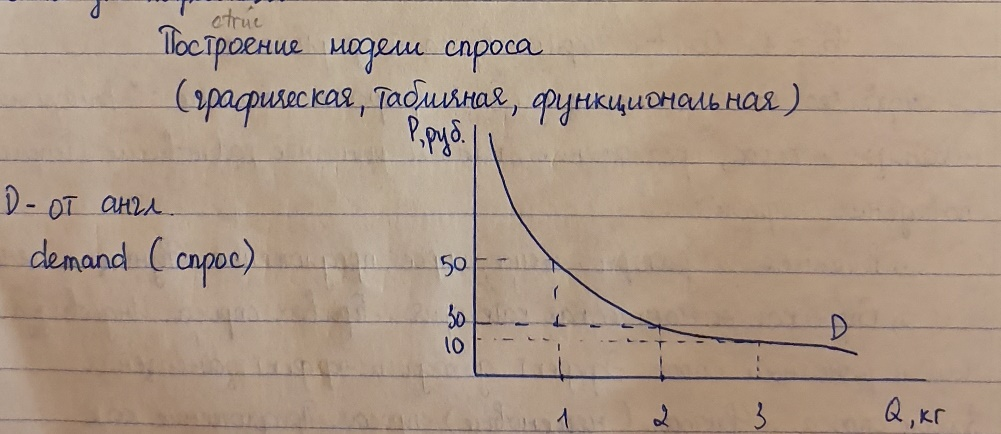 Построение модели спроса
(графическая, табличная, функциональная)
P, руб.
D - от англ.
demand (спрос)
50
30
10
D
1 2 3 Q, кг